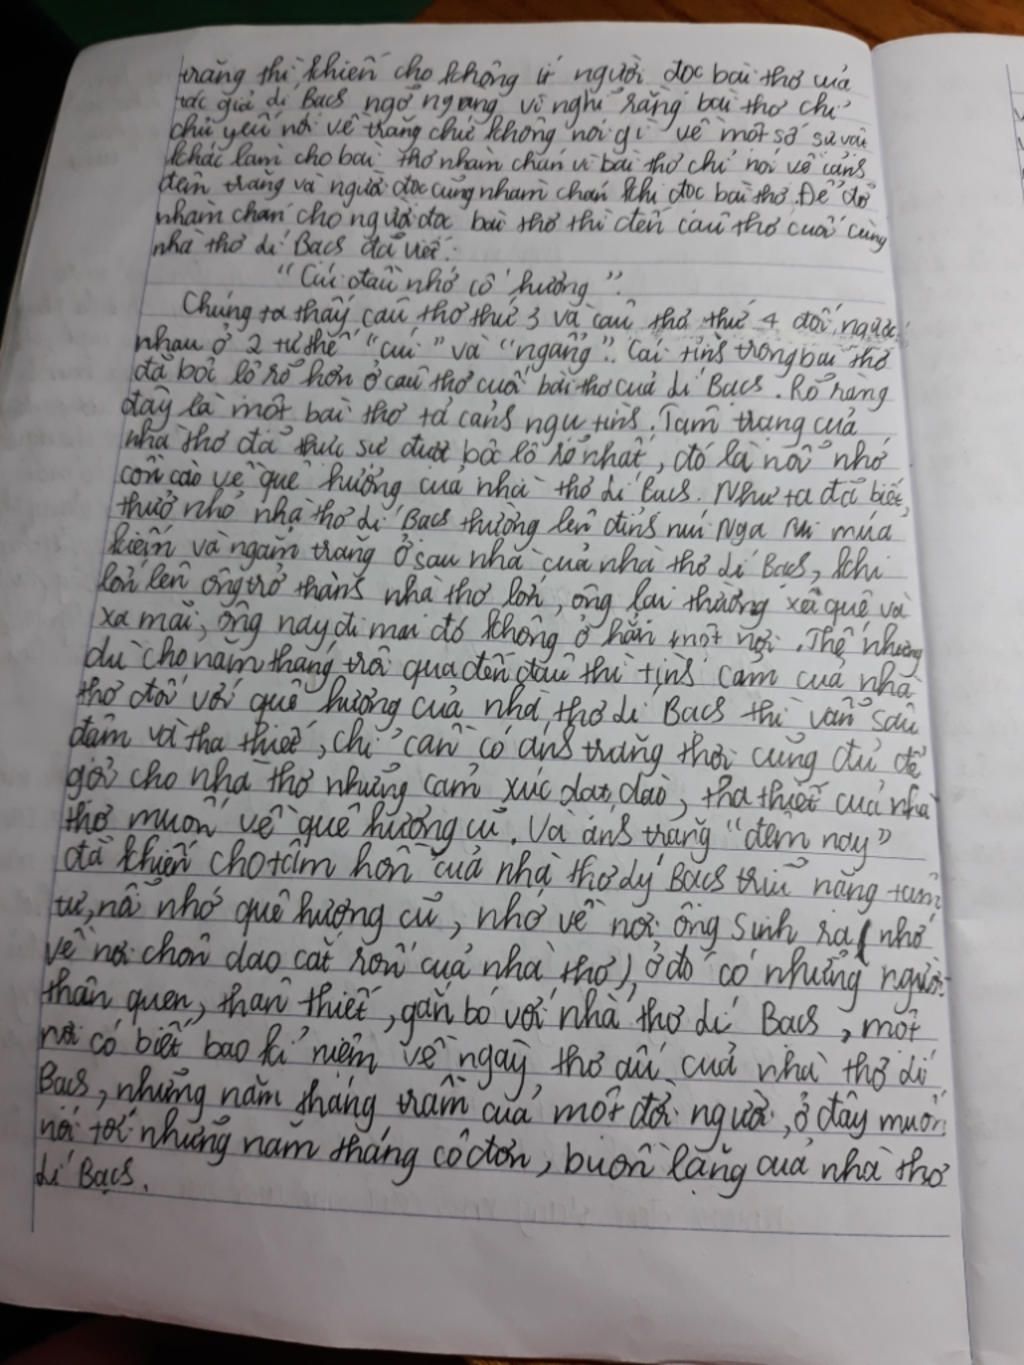 trăng thì khiến cho không ít người đọc bài thơ của
tác giả Lí Bạch ngỡ ngàng vì nghĩ rằng bài thơ chỉ
chủ yếu nói về trăng chứ không nói gì về một số sự vật
khác làm cho bài thơ nhàm chán vì bài thơ chỉ nói về cảnh
đêm trăng và người đọc cũng nhàm chán khi đọc bài thơ. Để đỡ
nhàm chán cho người đọc bài thơ thì đến câu thơ cuối cùng
nhà thơ Lí Bạch đã viết:
"Cúi đầu nhớ cố hương".
Chúng ta thấy câu thơ thứ 3 và câu thơ thứ 4 đối ngược
nhau ở 2 tư thế "cúi" và "ngẩng". Cái tình trong bài thơ
đã bộc lộ rõ hơn ở câu thơ cuối bài thơ của Lí Bạch. Rõ ràng
đây là một bài thơ tả cảnh ngụ tình. Tâm trạng của
nhà thơ đã thực sự được bộc lộ rõ nhất, đó là nỗi nhớ
cồn cào về quê hương của nhà thơ Lí Bạch. Như ta đã biết,
thuở nhỏ nhà thơ Lí Bạch thường lên đỉnh núi Nga Mi múa
kiếm và ngắm trăng ở sau nhà của nhà thơ Lí Bạch, khi
lớn lên ông trở thành nhà thơ lớn, ông lại thường xa quê và
xa mãi, ông nay đi mai đó không ở hẳn một nơi. Thế nhưng
dù cho năm tháng trôi qua đến đâu thì tình cảm của nhà
thơ đối với quê hương của nhà thơ Lí Bạch thì vẫn sâu
đậm và tha thiết, chỉ cần có ánh trăng thôi cũng đủ để
gợi cho nhà thơ những cảm xúc dạt dào, tha thiết của nhà
thơ muốn về quê hương cũ. Và ánh trăng "đêm nay"
đã khiến cho tâm hồn của nhà thơ Lý Bạch trĩu nặng tâm
tư, nỗi nhớ quê hương cũ, nhớ về nơi ông sinh ra ( nhớ
về nơi chôn dao cắt rốn của nhà thơ ), ở đó có những người
thân quen, thân thiết, gắn bó với nhà thơ Lí Bạch, một
nơi có biết bao kỉ niệm về ngày thơ ấu của nhà thơ Lí
Bạch, những năm tháng trầm của một đời người, ở đây muốn
nói tới những năm tháng cô đơn, buồn lặng của nhà thơ
Lí Bạch.